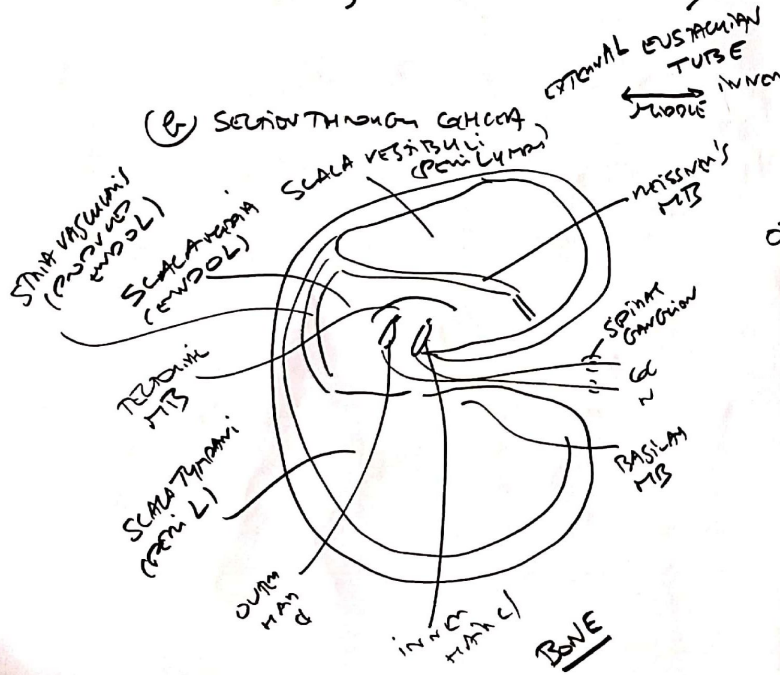 EXTERNAL
EUSTACHIAN
TUBE
MIDDLE
INNER
(b) SECTION THROUGH COCHLEA
SCALA VESTIBULI
(PERILYMPH)
REISSNER'S
MB
STRIA VASCULARIS
(PRODUCES
ENDOL)
SCALA MEDIA
(ENDOL)
SPIRAL
GANGLION
TECTORIAL
MB
N
BASILAR
MB
SCALA TYMPANI
(PERI L)
OUTER
HAIR
INNER
HAIR
BONE